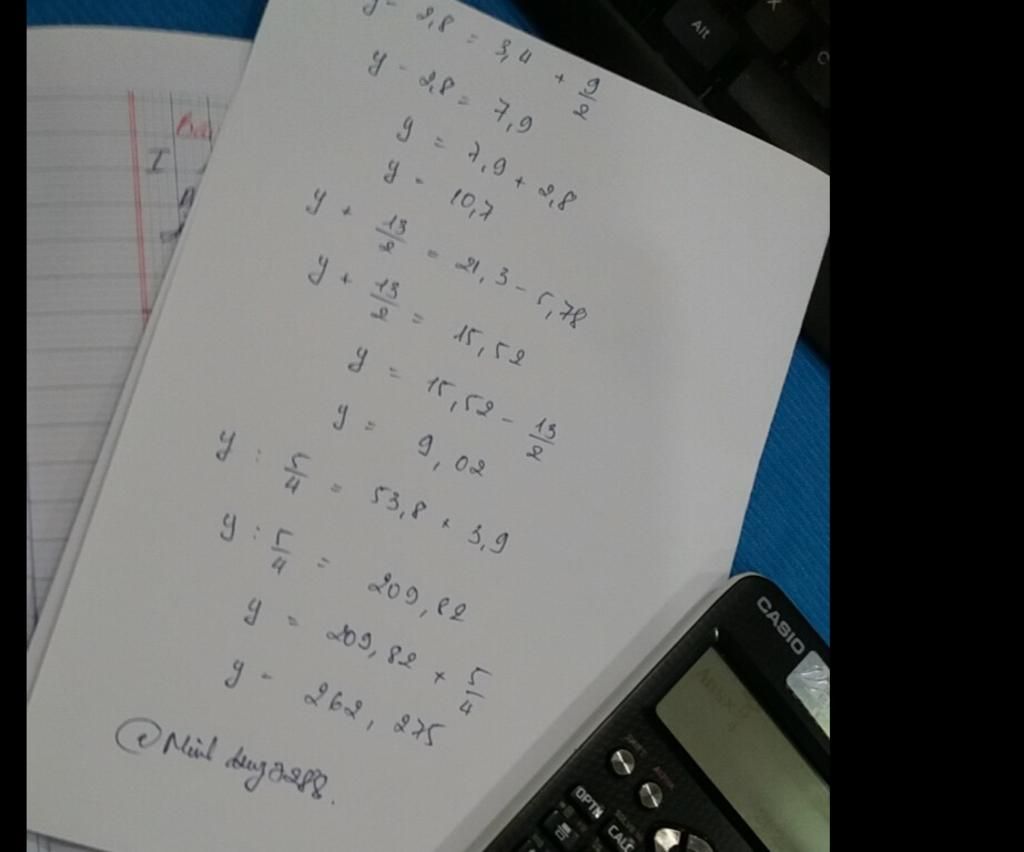 y - 2,8 = 3,4 + 9/2
y - 2,8 = 7,9
y = 7,9 + 2,8
y = 10,7
y + 13/2 = 21,3 - 5,78
y + 13/2 = 15,52
y = 15,52 - 13/2
y = 9,02
y : 5/4 = 53,8 × 3,9
y : 5/4 = 209,82
y = 209,82 × 5/4
y = 262,275
I
Alt
X
C
CASIO
OPTN
CALC